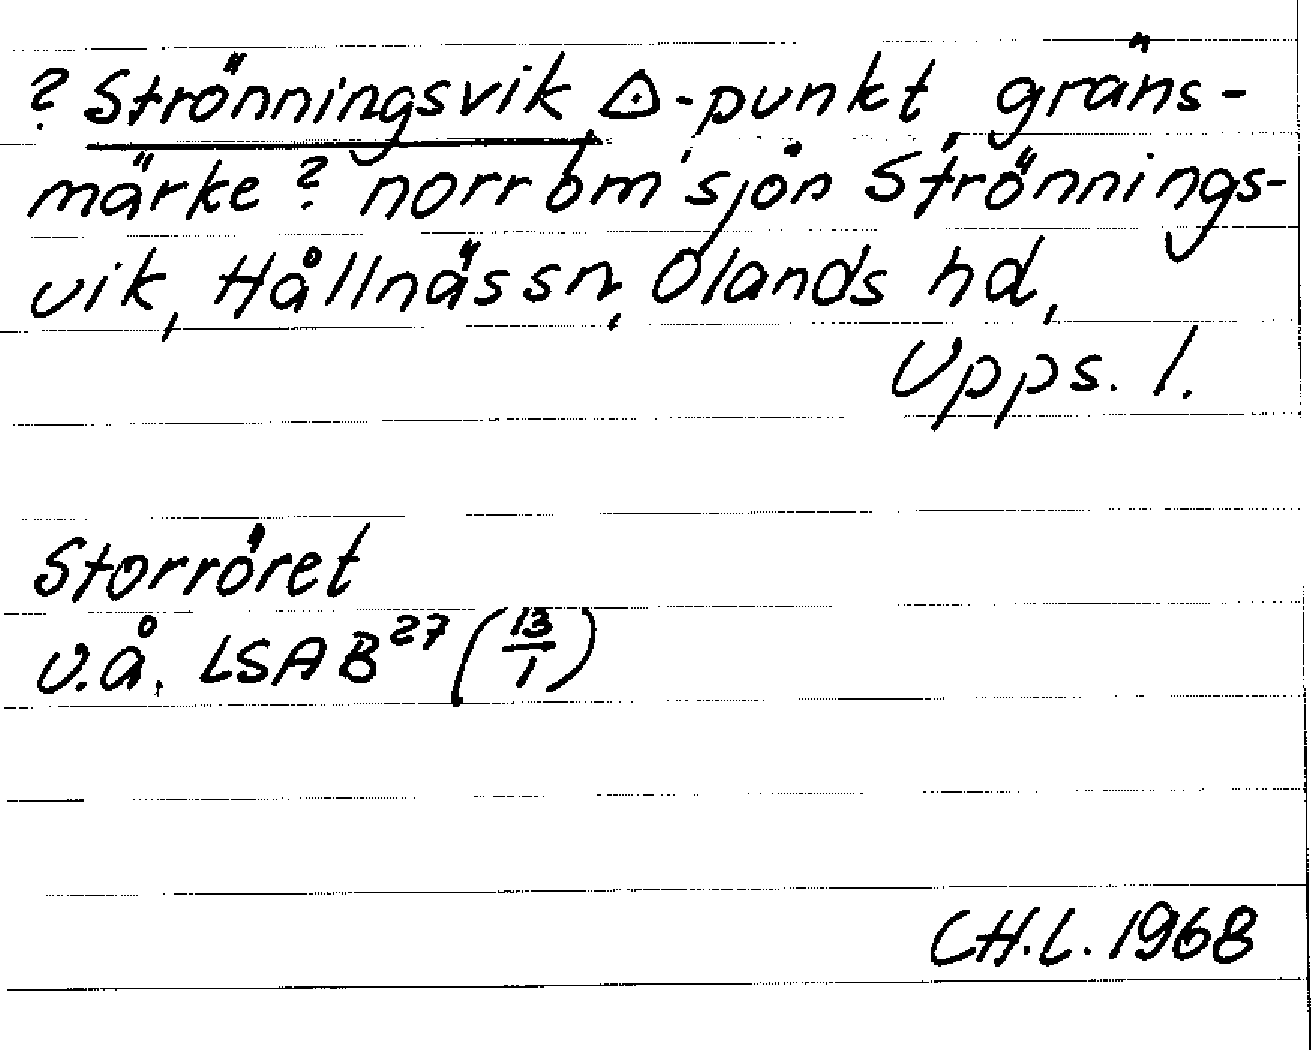 ? Strönningsvik △-punkt, gräns-
märke? norr om sjön Strönnings-
vik, Hållnäs sn, Olands hd,
Upps. l.
Storröret
u.å. LSA B²⁷ (13/1)
CH.L. 1968